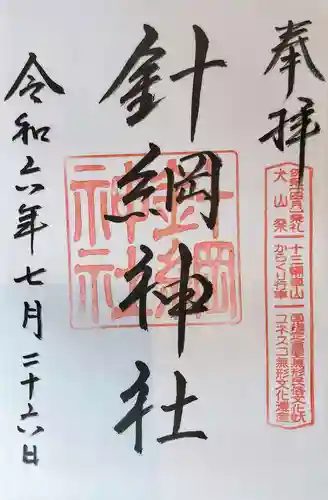 奉拝
例祭(四月)祭礼
犬山祭
十三輌車山
からくり行事
国指定重要無形民俗文化財
ユネスコ無形文化遺産
針綱神社
針綱神社
令和六年七月二十六日